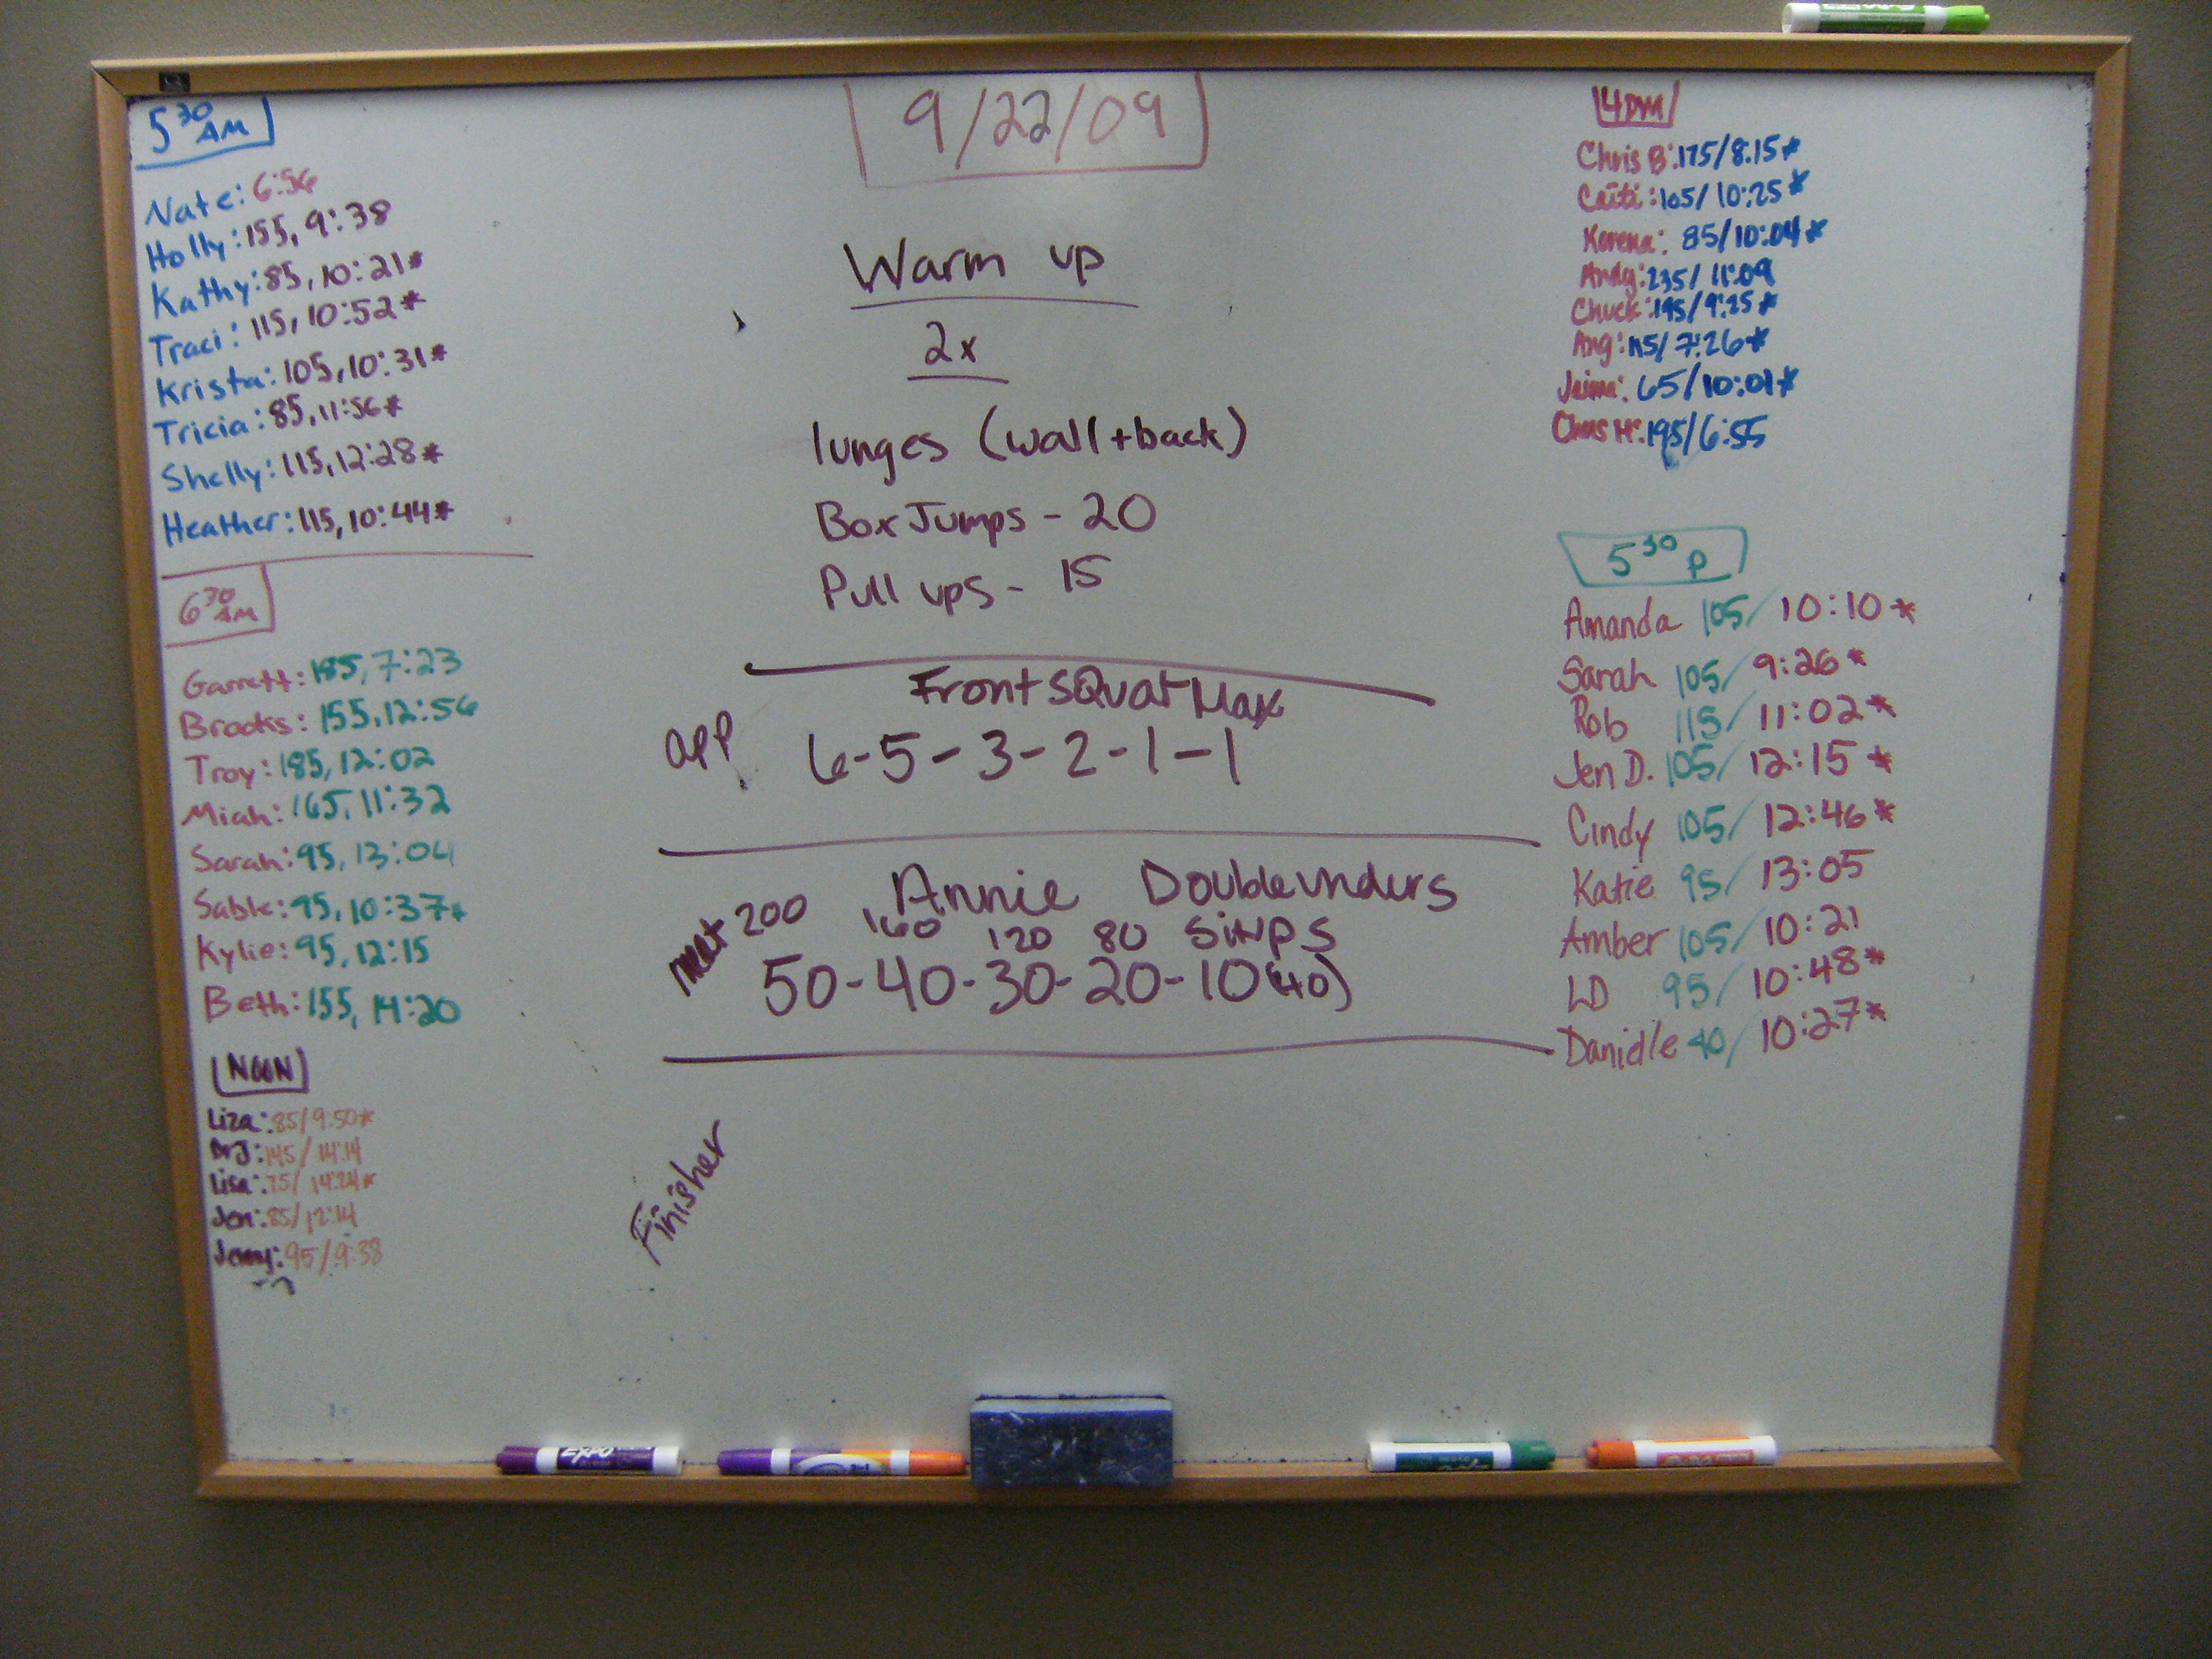 9/22/09
5 30 AM
Nate: 6:56
Holly: 155, 9:38
Kathy: 85, 10:21*
Traci: 115, 10:52*
Krista: 105, 10:31*
Tricia: 85, 11:56*
Shelly: 115, 12:28*
Heather: 115, 10:44*
6 30 AM
Garrett: 185, 7:23
Brooks: 155, 12:56
Troy: 185, 12:02
Miah: 165, 11:32
Sarah: 95, 13:04
Sable: 95, 10:37*
Kylie: 95, 12:15
Beth: 155, 14:20
NOON
Liza: 85/9:50*
145/14:14
Lisa: 75/14:24*
Jen: 85/12:14
Jenny: 95/9:38
Warm up
2x
lunges (wall+back)
Box Jumps - 20
Pull ups - 15
Front SQuat Max
app 6-5-3-2-1-1
Annie Doubleunders
met 200 160 120 80 SitUPS
50-40-30-20-10 (40)
Finisher
4PM
Chris B: 175/8:15*
Caiti: 105/10:25*
Korena: 85/10:04*
Andy: 235/11:09
Chuck: 195/9:25*
Ang: 115/7:26*
Jaima: 65/10:01*
Chris H: 195/6:55
5 30 p
Amanda 105/ 10:10*
Sarah 105/ 9:26*
Rob 115/ 11:02*
Jen D. 105/ 12:15*
Cindy 105/ 12:46*
Katie 95/ 13:05
Amber 105/ 10:21
LD 95/ 10:48*
Danielle 40/ 10:27*
EXPO